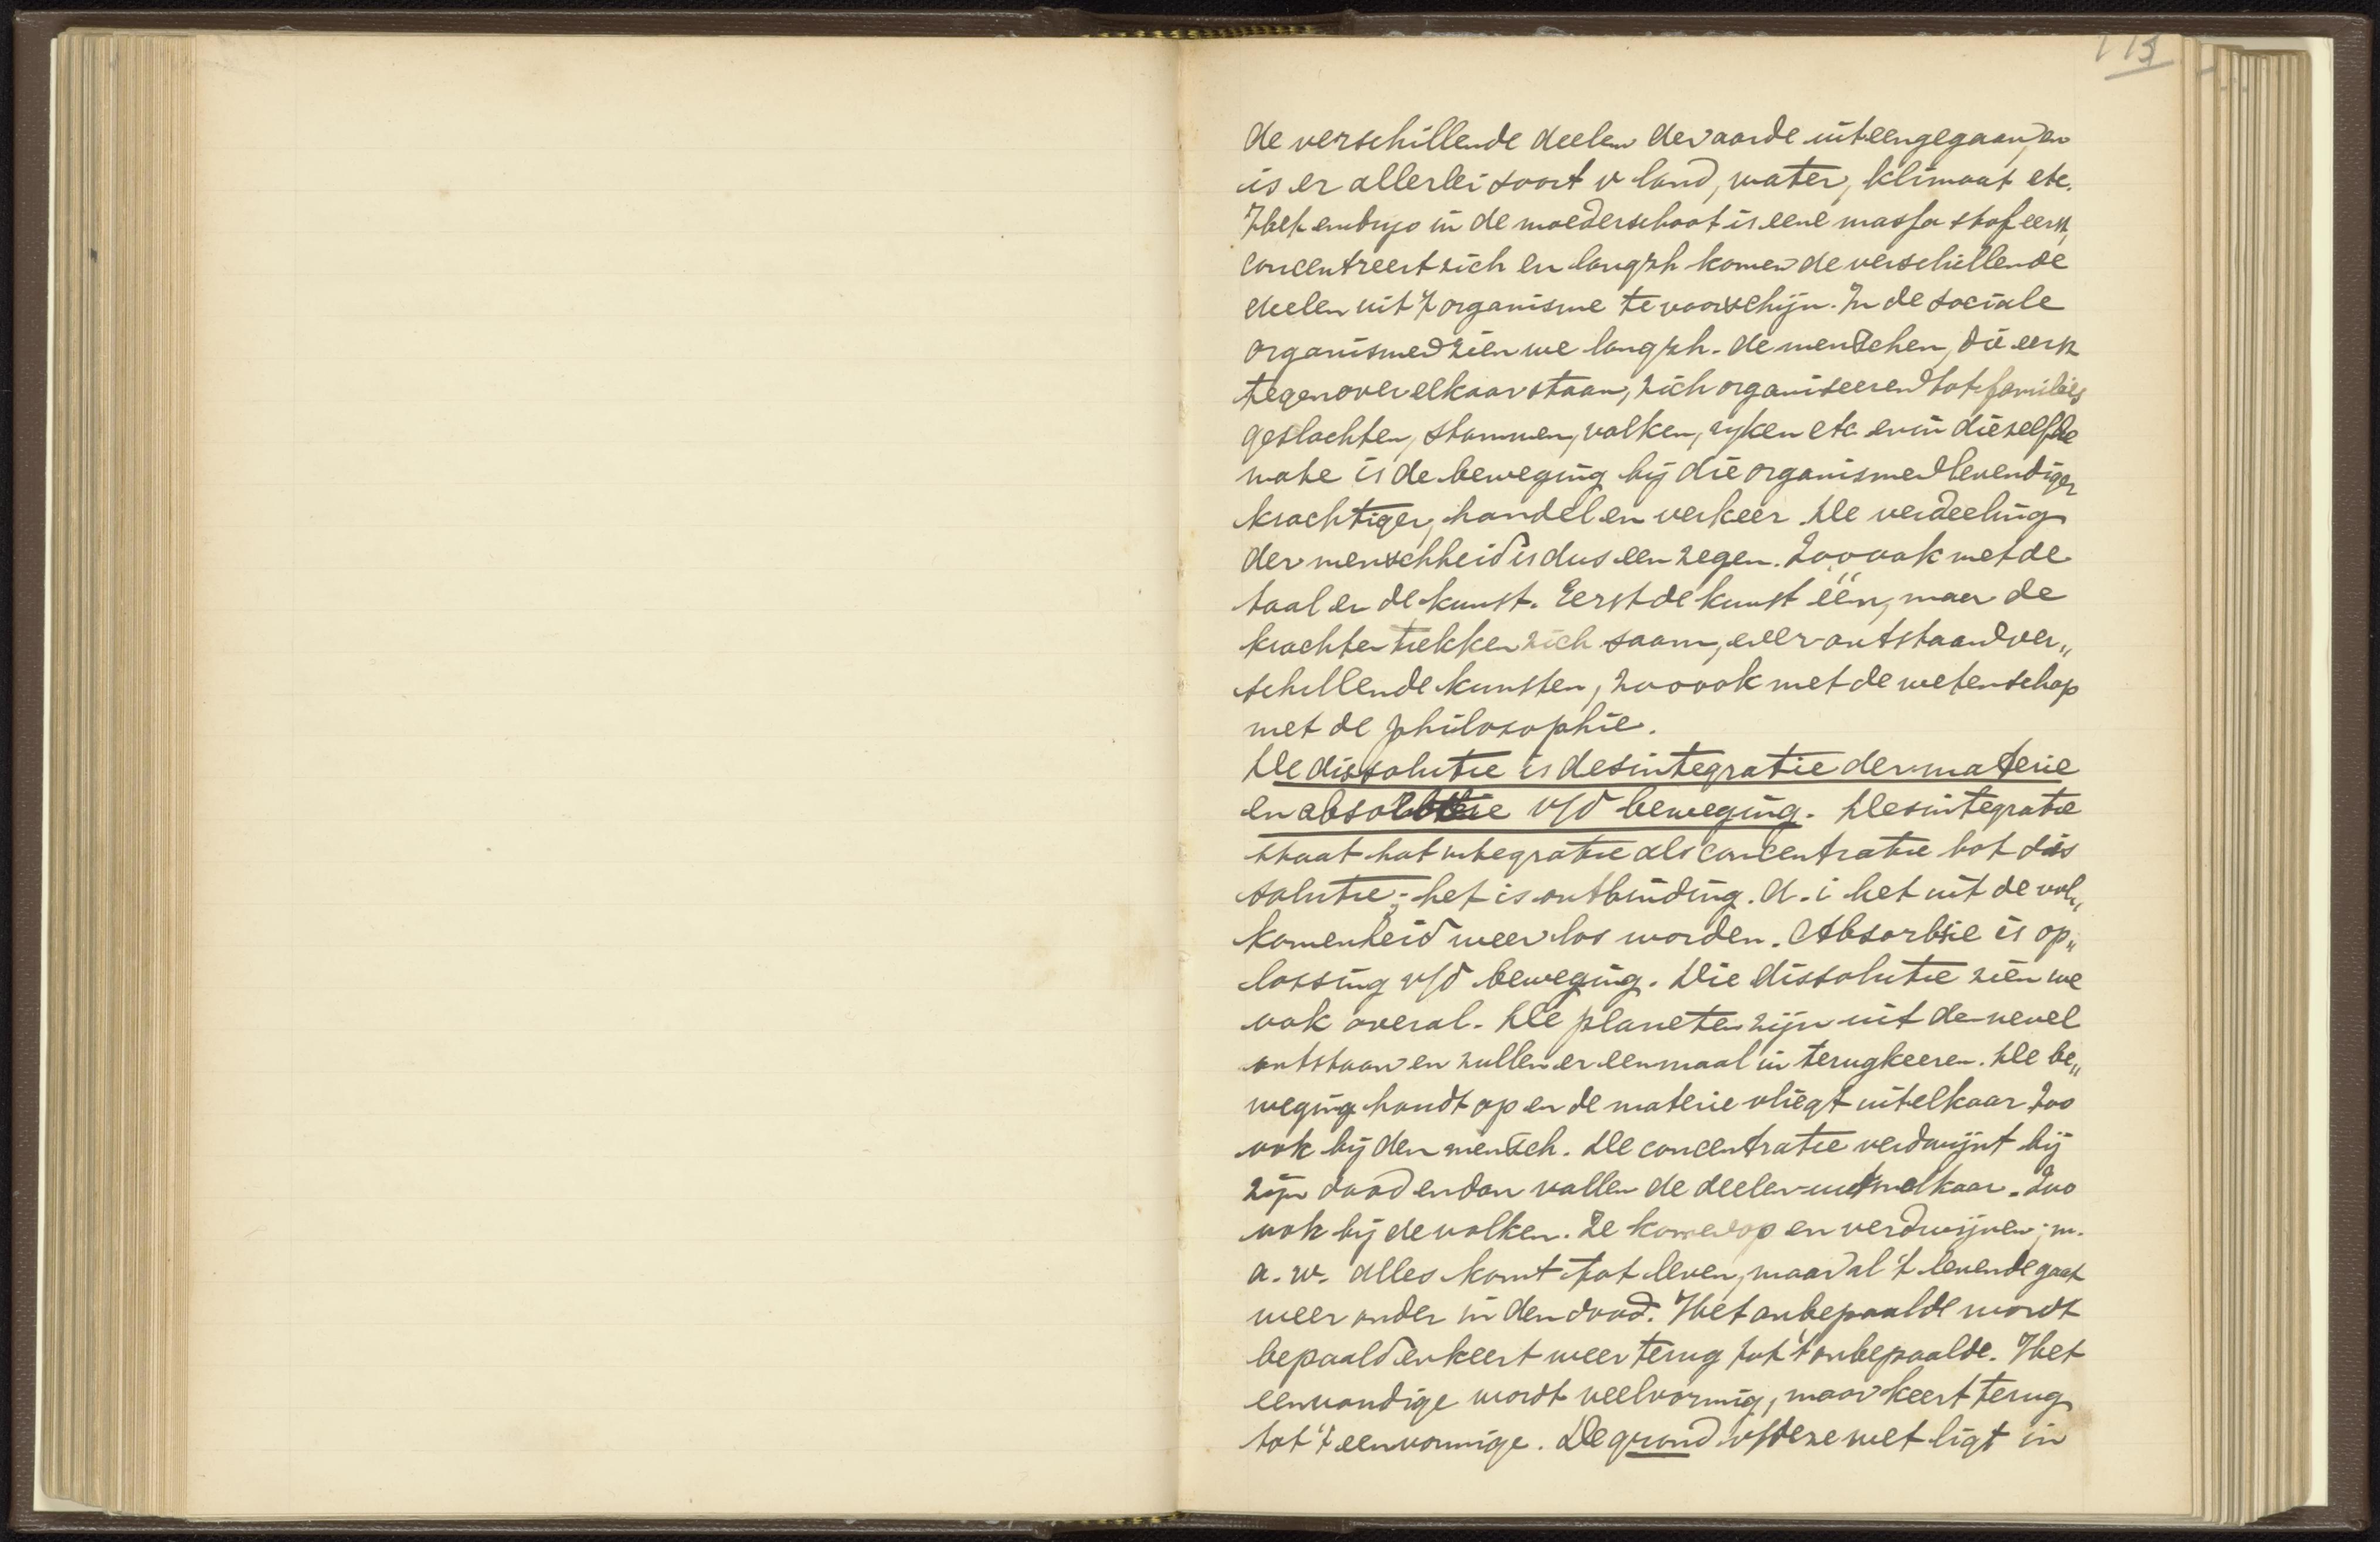 113
de verschillende deelen der aarde uiteengegaan, en
is er allerlei soort v land, water, klimaat etc.
Het embryo in de moederschoot is eene massa stof eerst,
concentreert zich en langzh komen de verschillende
deelen uit 't organisme te voorschijn. In de sociale
organismen zien we langzh. de menschen, die eerst
tegenover elkaar staan, zich organiseeren tot families
geslachten, stammen, volken, ryken etc. en in diezelfde
mate is de beweging bij die organismen levendiger
krachtiger, handel en verkeer. De verdeeling
der menschheid is dus een zegen. Zoo ook met de
taal en de kunst. Eerst de kunst één, maar de
krachten trekken zich saam, en er ontstaan ver„
schillende kunsten, zoo ook met de wetenschap
met de philosophie.
De dissolutie is desintegratie der materie
en absorbtie v/d beweging. Desintegratie
staat tot integratie als concentratie tot dis
solutie; het is ontbinding. d. i het uit de vol„
komenheid weer los worden. Absorbsie is op„
lossing v/d beweging. Die dissolutie zien we
ook overal. De planeten zijn uit de nevel
ontstaan en zullen er eenmaal in terugkeeren. De be„
weging houdt op en de materie vliegt uitelkaar Zoo
ook bij den mensch. De concentratie verdwijnt bij
zijn dood en dan vallen de deelen uit melkaar. Zoo
ook bij de volken. Ze komen op en verdwijnen; m.
a. w. alles komt tot leven, maar al 't levende gaat
weer onder in den dood. Het onbepaalde wordt
bepaald en keert weer terug tot 't onbepaalde. Het
eenvoudige wordt veelvormig, maar keert terug
tot 't eenvormige. De grond v/deze wet ligt in